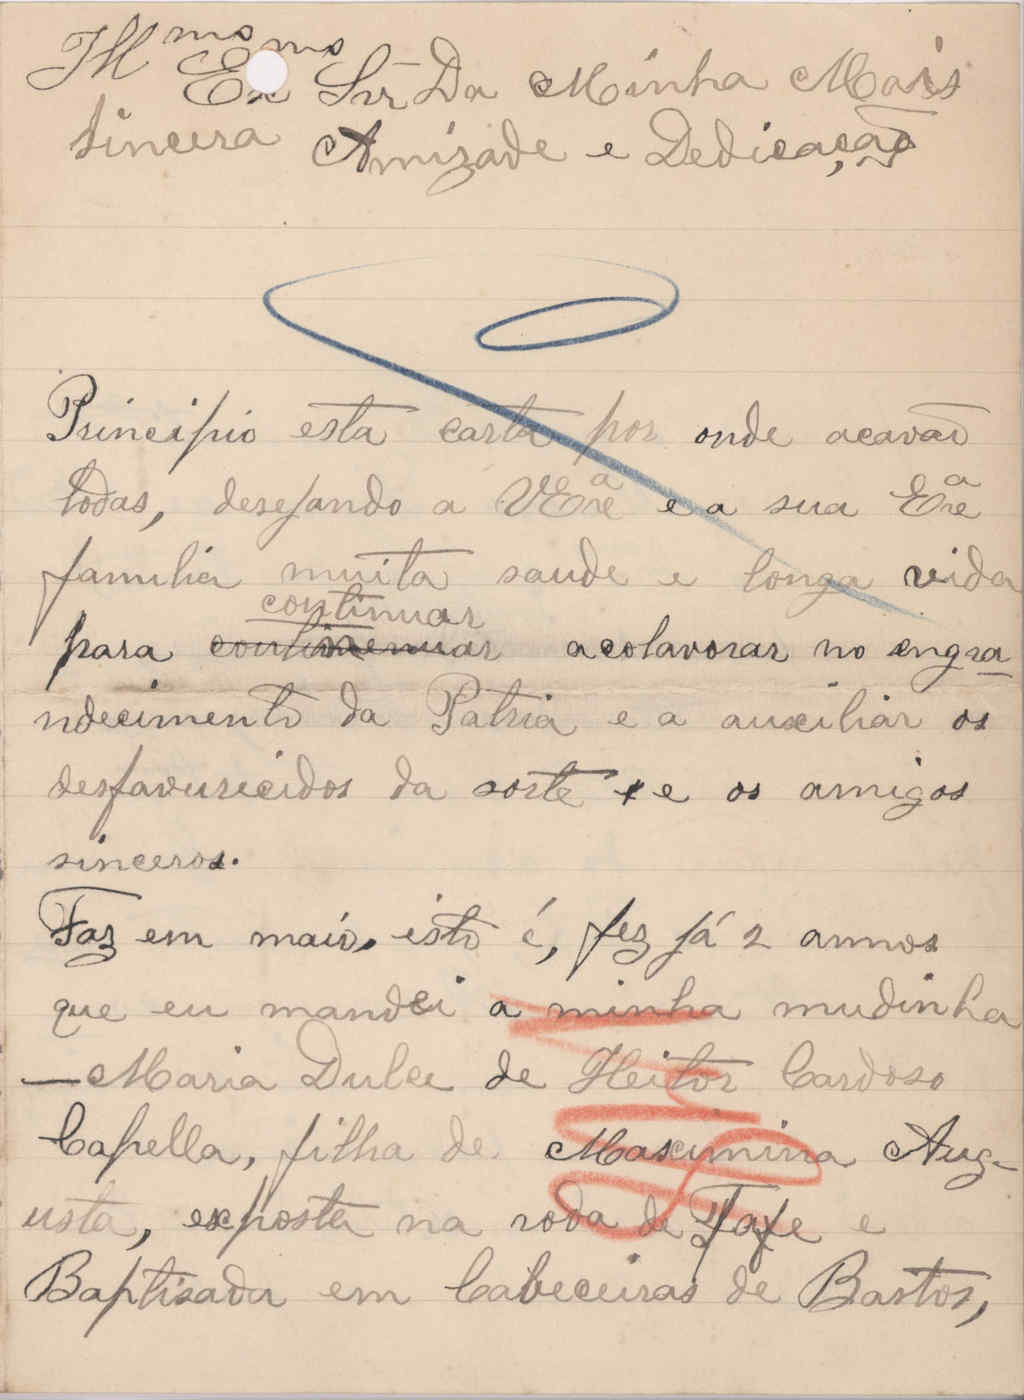 Illmo Exmo Snr Da Minha Mais
sincera Amizade e Dedicação
Principio esta carta por onde acavão
todas, desejando a VExcia e a sua Excia
familia muita saude e longa vida
continuar
para continenuar acolavorar no engra
ndecimento da Patria e a auxiliar os
desfavurecidos da sorte e e os amigos
sinceros.
Faz em maio, isto é, fez já 2 annos
que eu mandei a minha mudinha
— Maria Dulce de Heitor Cardoso
Capella, filha de Maximina Aug-
usta, exposta na roda de Fafe e
Baptisada em Cabeceiras de Bastos,